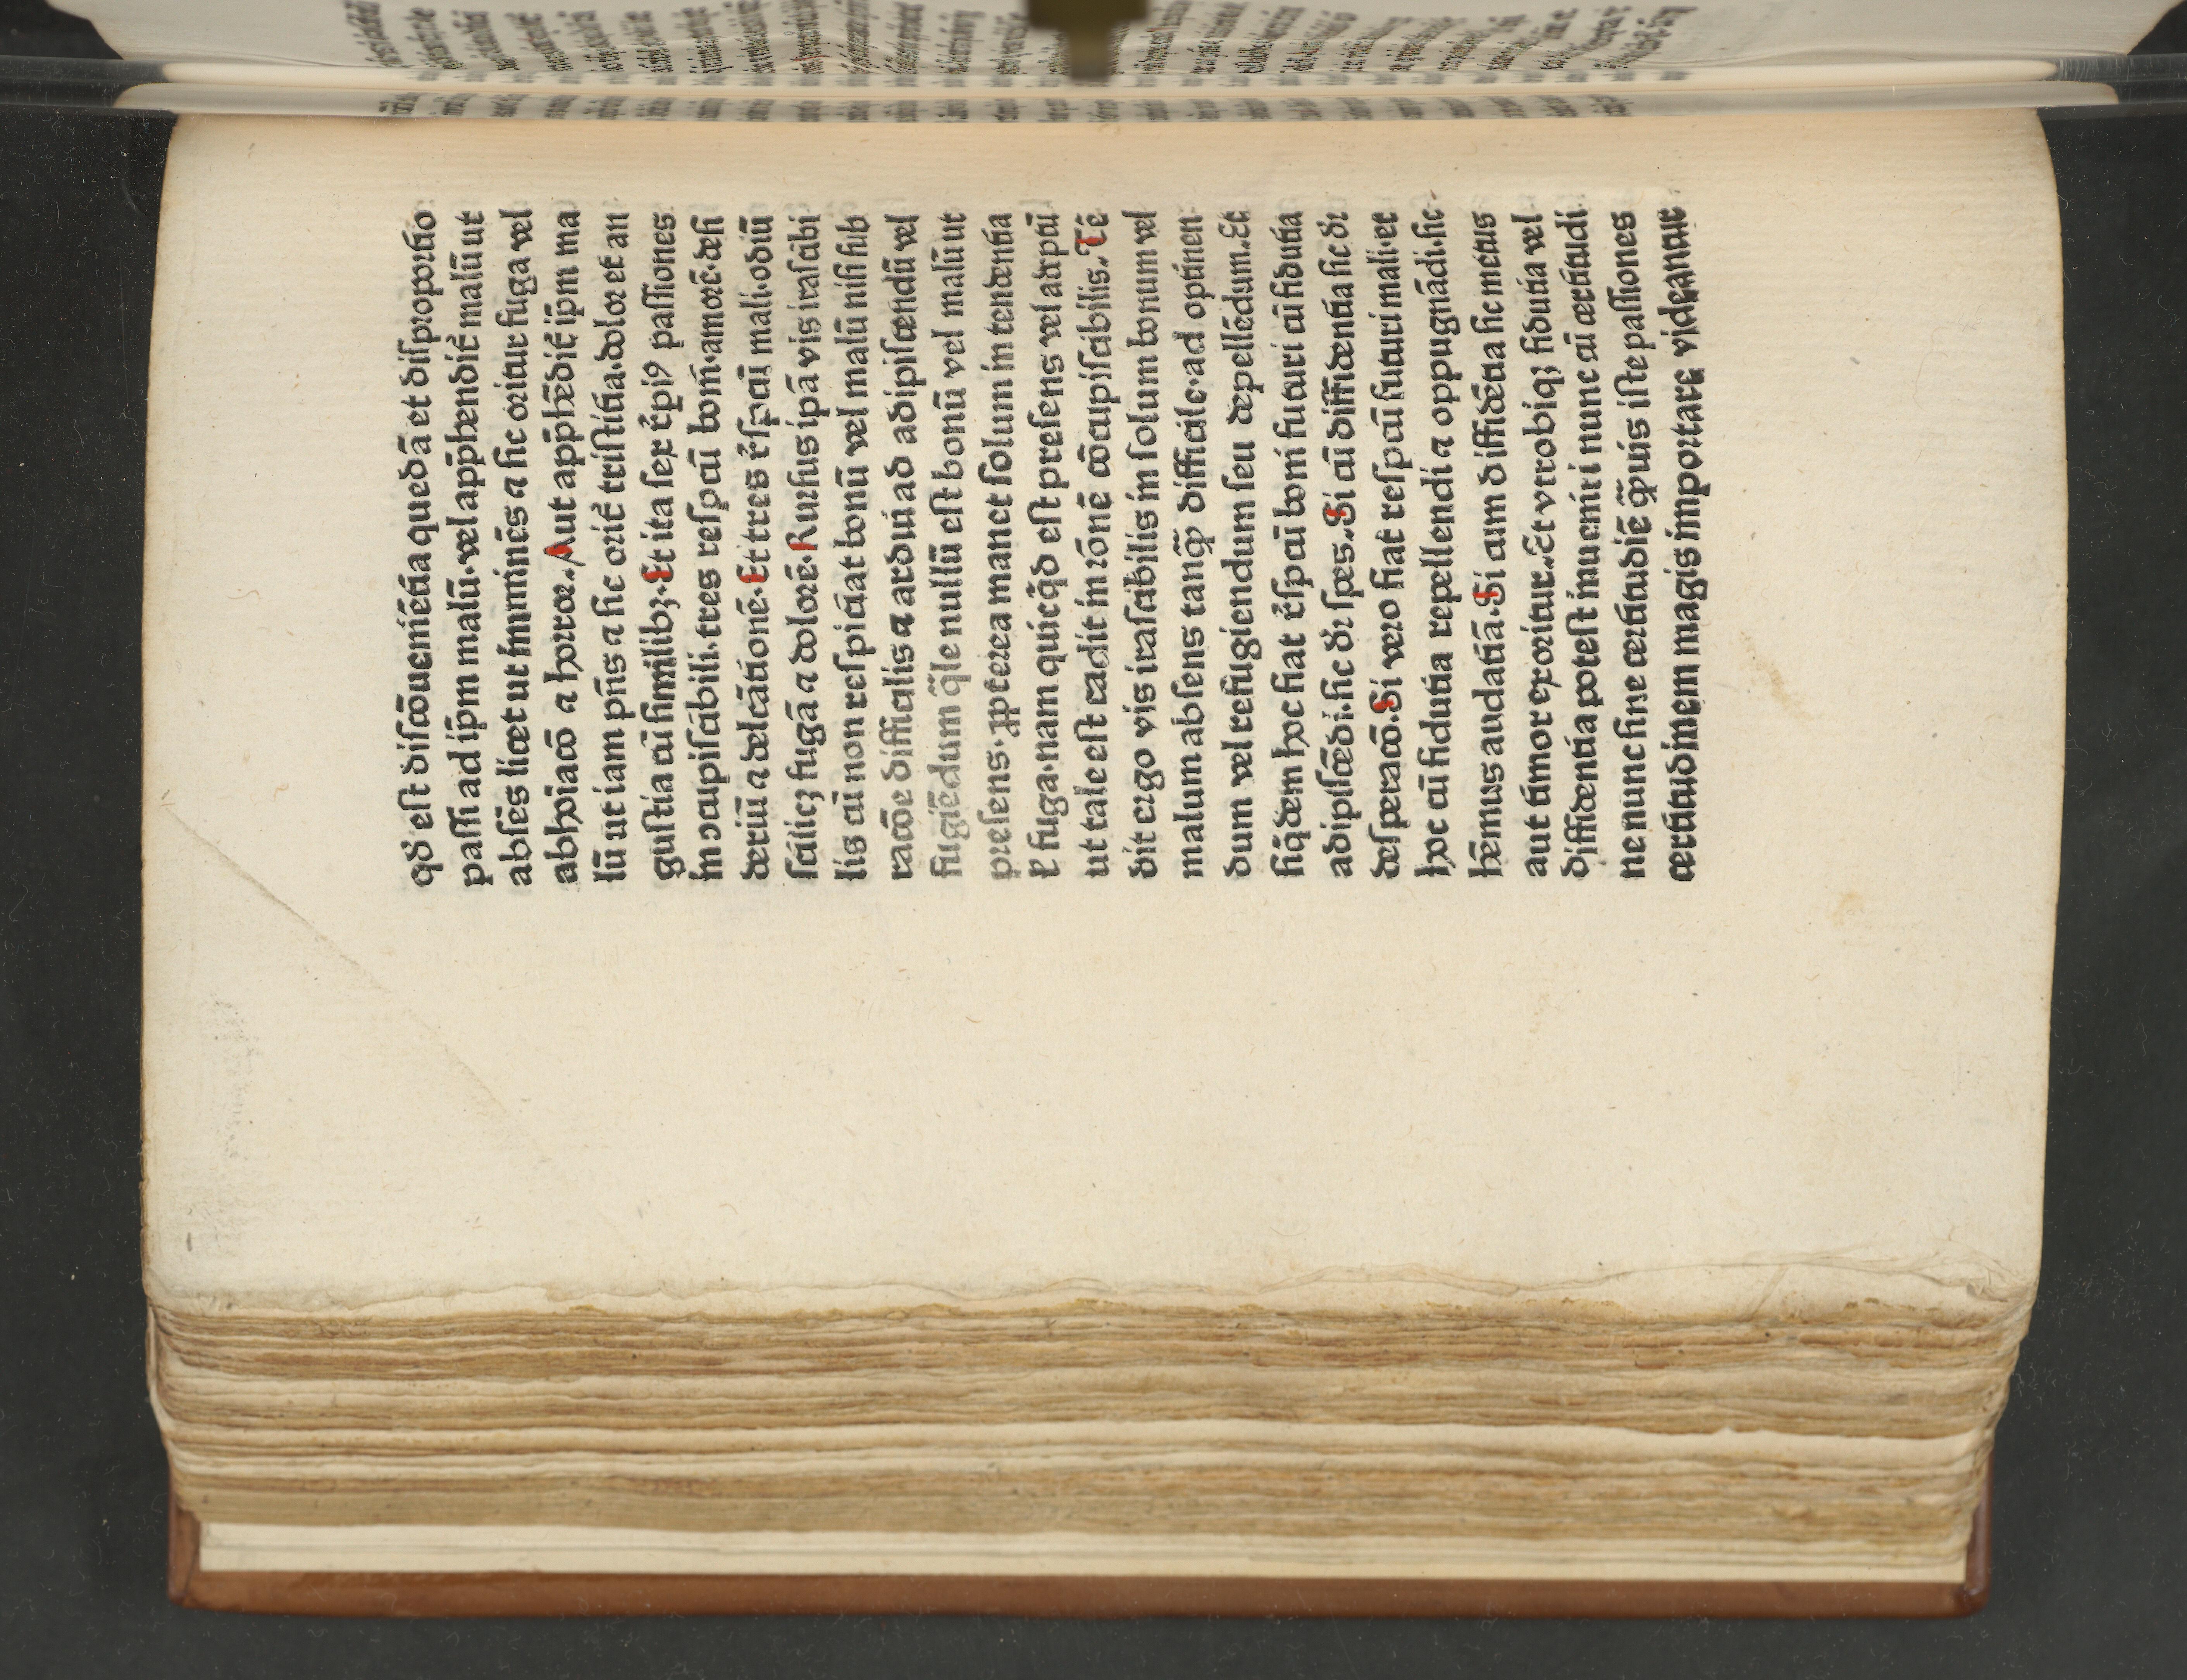 qđ est discōueniētia quedā et disproportio
passi ad ip̄m malū·vel app̄hendit̄ malū ut
absēs licet ut imminēs ⁊ sic oritur fuga vel
abhoīacō ⁊ horror. Aut app̄hēdit̄ ip̄m ma
lū ut iam pn̄s ⁊ sic orit̄ tristitia·dolor et an
gustia cū similibꝫ·Et ita sex r̄pi⁹ passiones
in ↄcupiscibili·tres respcū boni·amorē·desi
deriū ⁊ delcātionē·Et tres r̄spcū mali·odiū
scilicꝫ fugā ⁊ dolorē·Rursus ip̄a vis irascibi
lis cū non respiciat bonū vel malū nisi sub
racōe difficilis ⁊ ardui ad adipiscendū vel
fugiēdum q̄le nullū est bonū vel malū ut
presens·ꝓpterea manet solum in tendentia
⁊ fuga·nam quicq̄d est presens vel adeptū
ut tale est cadit in rōnē cōcupiscibilis. Tē
dit ergo vis irascibilis in solum bonum vel
malum absens tanq̄ difficile·ad optinen
dum vel refugiendum seu depellēdum. Et
siq̄dem hoc fiat r̄spcū boni futuri cū fidutia
adipiscēdi·sic dr̄ spes. Si cū diffidentia sic dr̄
desperacō·Si vero fiat respcū futuri mali·et
hoc cū fidutia repellendi ⁊ oppugnādi·sic
hēmus audatiā·Si cum diffidētia sic metus
aut timor exoritur. Et vtrobiqꝫ fidutia vel
diffidentia potest inueniri nunc cū certitudi
ne nunc sine certitudīe q̄uis iste passiones
certitudinem magis importare videantur